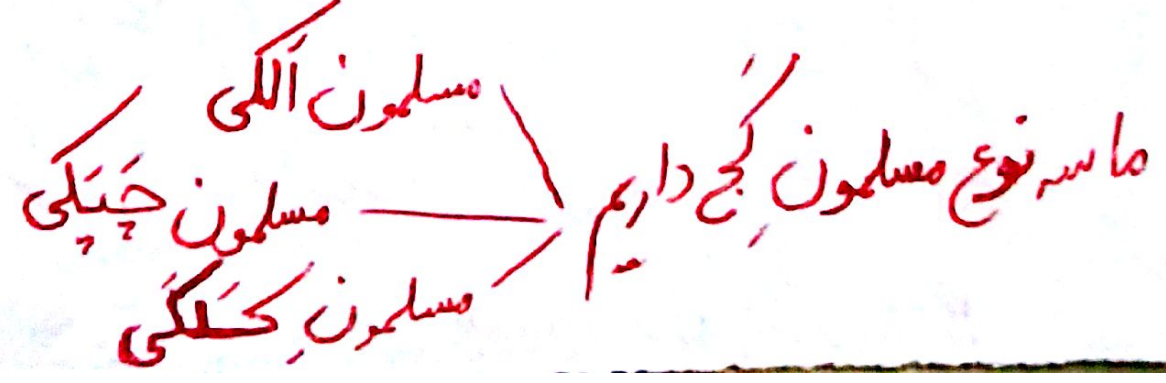 ما سه نوع مسلمونِ کَج داریم
مسلمون اَلَکی
مسلمون چَپَکی
مسلمونِ کَلَکی